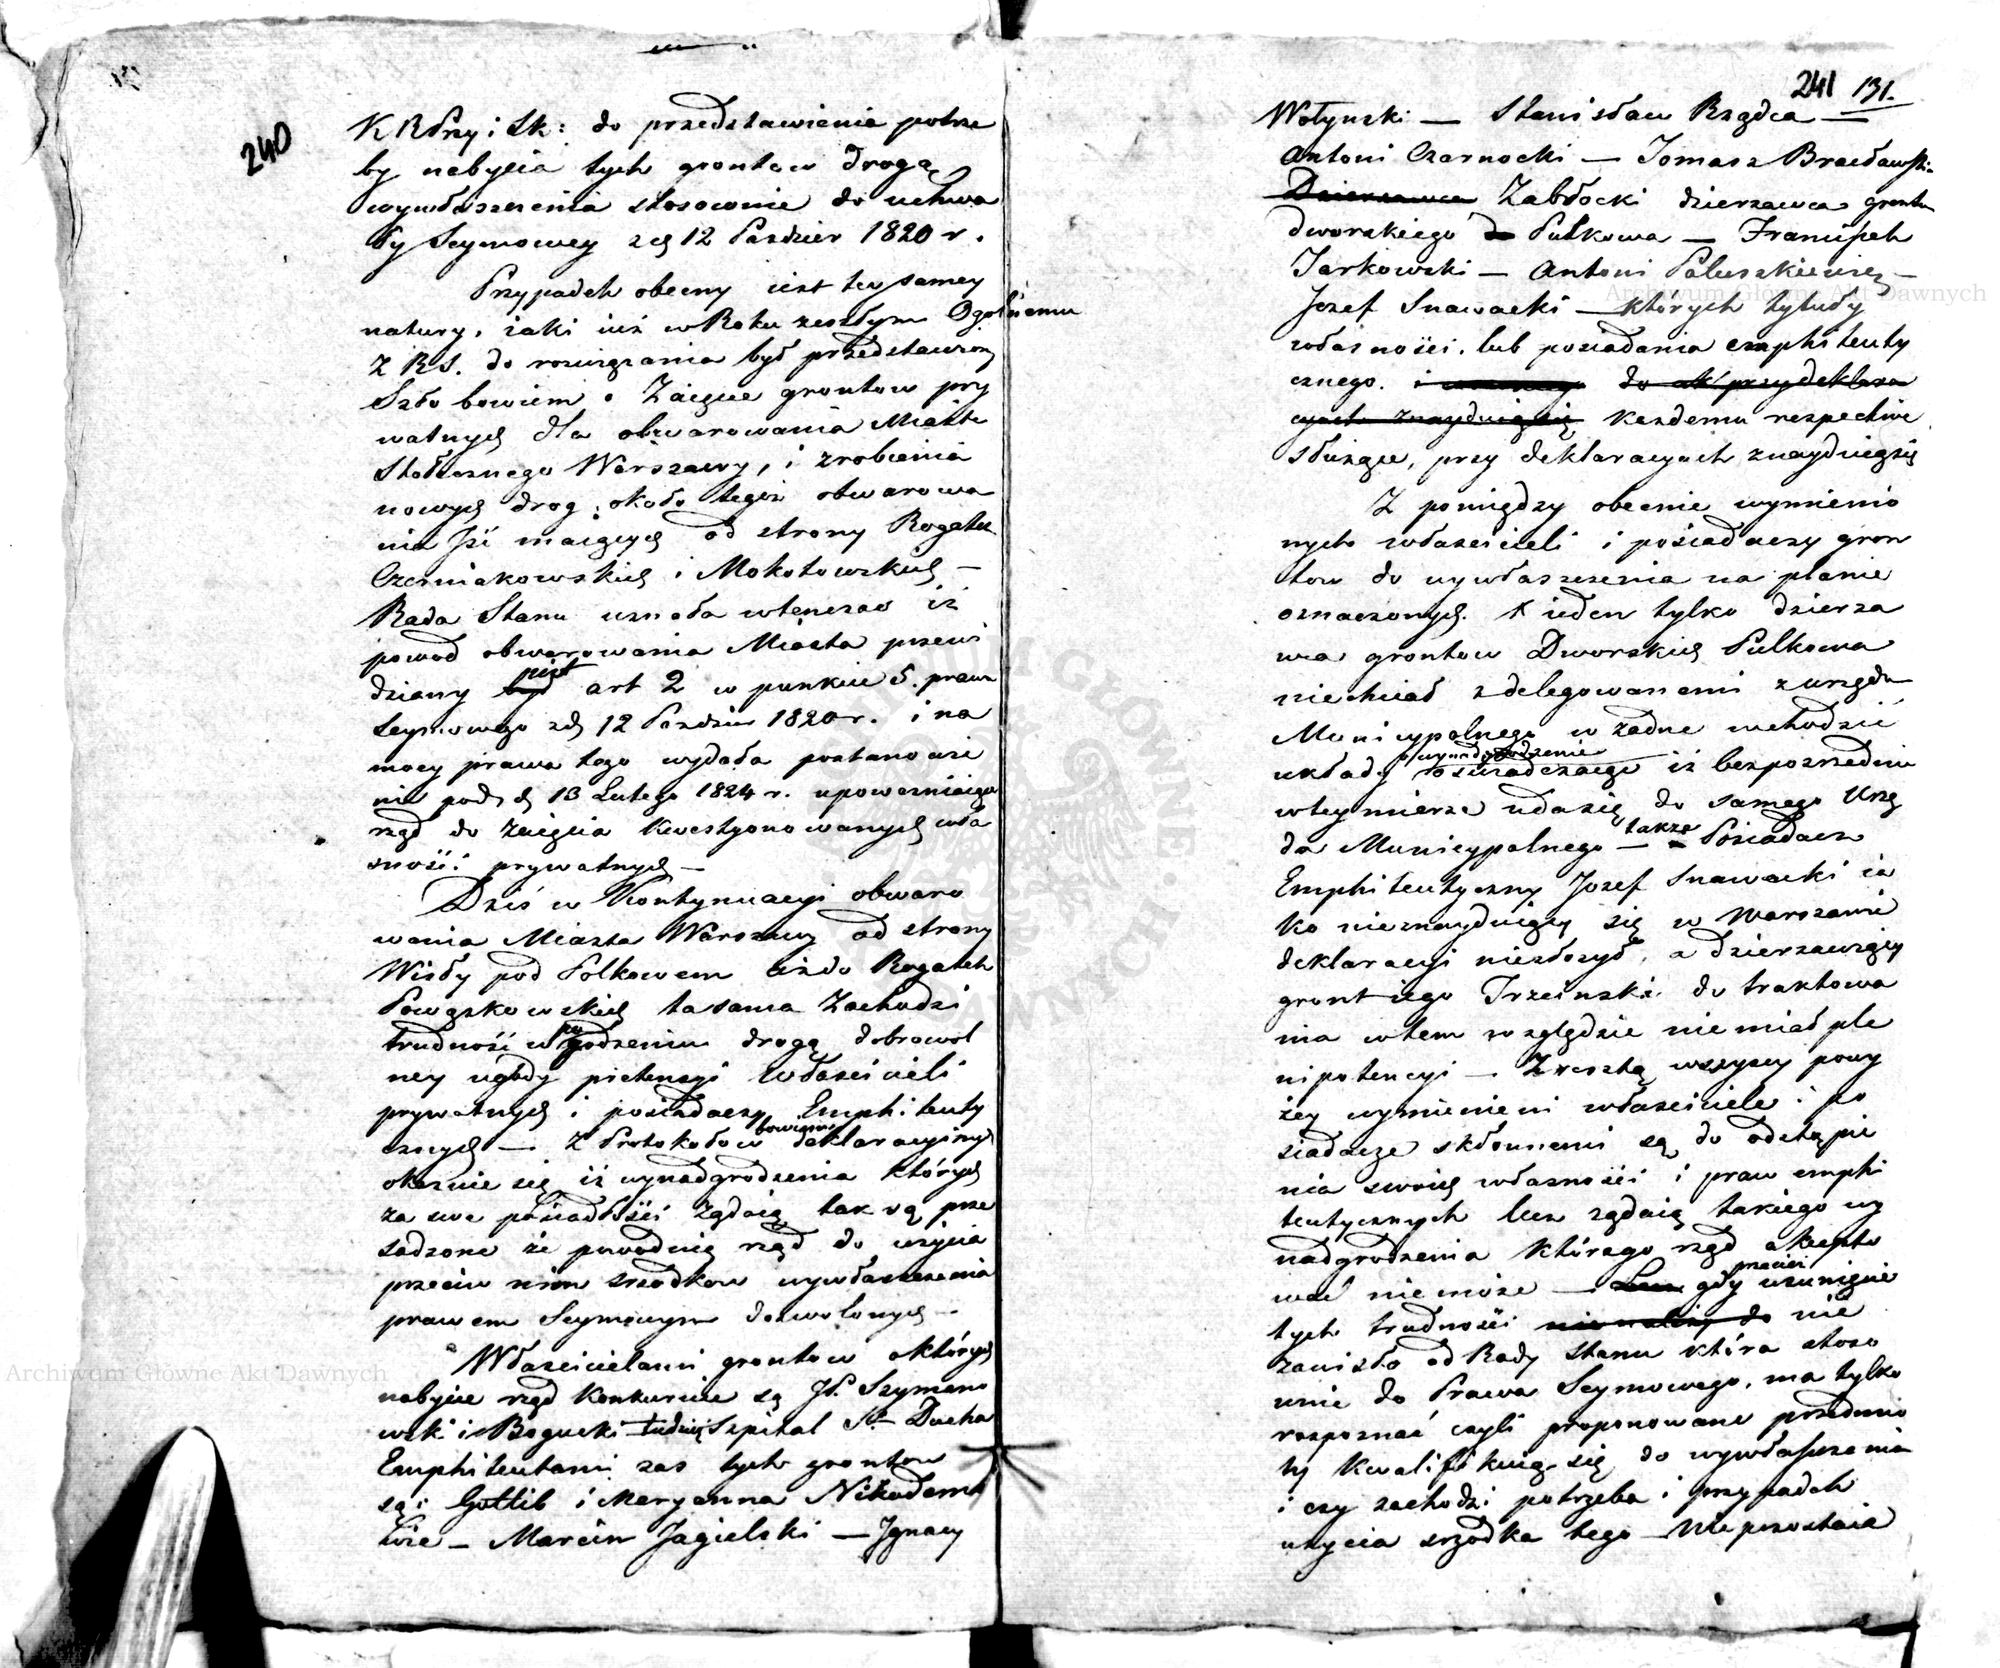 240
K R Przy i Sk: do przedstawienia potrze
by nabycia tych grontow drogą
wywłaszczenia stosownie do uchwa
ły Seymowey z d 12 Pazdzier 1820 r.
Przypadek obecny iest tey samey
natury, iaki iuż w Roku zeszłym Ogolnemu
Z R S. do rozwiązania był przedstawiony
Szło bowiem o Zaięcie grontow pry
watnych dla obwarowania Miasta
Stołecznego Warszawy, i zrobienia
nowych drog około tegoż obwarowa
nia Jśź maiących od strony Rogatek
Czerniakowskich i Mokotowskich —
Rada Stanu uznała wtenczas iż
powod obwarowania Miasta przewi
dziany jest art 2 w punkcie 5. prawa
Seymowego z d 12 Pazdzier 1820 r. i na
mocy prawa tego wydała postanowie
nie pod d 13 Lutego 1824 r. upoważniaiące
rząd do zaięcia kwestyonowanych wła
sności prywatnych —
Dziś w Kontynuacyi obwaro
wania Miasta Warszawy od strony
Wisły pod Polkowem aż do Rogatek
Powązkowskich ta sama Zachodzi
trudność w pogodzeniu drogą dobrowol
ney ugody pretensyi Właścicieli
prywatnych i posiadaczy Emphiteuty
cznych — Z Protokołow bowiem deklaracyinych
okazuie się iż wynadgrodzenia których
za swe posiadłości żądaią tak są prze
sadzone że powoduią rząd do użycia
przeciw nim srzodkow wywłaszczenia
prawem Seymowym dozwolonych —
Właścicielami grontow o których
nabycie rząd konkuruie są JP. Szymano
wski i Bogucki tudzież Szpital S° Ducha
Emphiteutami zas tych grontow
są: Gottlib i Maryanna Nikodem
Marcin Jagielski — Ignacy
241 131.
Wołynski — Stanisław Rządca —
Antoni Czarnocki — Tomasz Bracławski
Dzierzawca Zabłocki dzierzawca grontu
dworskiego Pulkowa — Franciszek
Jarkowski — Antoni Paluszkiewicz —
Jozef Snawacki — których tytuły
własności. lub posiadania emphiteuty
cznego. i do akt przy deklara
cyach znayduią się kazdemu respective
słuzące, przy deklaracyach znayduią się
Z pomiędzy obecnie wymienio
nych właścicieli i posiadaczy gron
tow do wywłaszczenia na planie
oznaczonych. ieden tylko dzierza
wca grontow Dworskich Pulkowa
niechciał z delegowanemi z urzędu
Municypalnego w żadne wchodzić
układy o wynadgrodzenie oswiadczaiąc iż bezposrzednio
w tey mierze uda się do samego Urzę
du Municypalnego — także Posiadacz
Emphiteutyczny Jozef Snawacki ia
ko nieznayduiący się w Warszawie
deklaracyi niezłożył, a dzierzawiący
gront iego Trzcinski do traktowa
nia w tem względzie nie miał ple
nipotencyi — Zresztą wszyscy powy
żey wymienieni właściciele i po
siadacze skłonnemi są do odstąpie
nia swoich własności i praw emphi
teutycznych lecz żądaią takiego wy
nadgrodzenia którego rząd akcepto
wać nie może — Lecz gdy przecież usunięcie
tych trudności nie należy do nie
zawisło od Rady Stanu która stoso
wnie do Prawa Seymowego, ma tylko
rozpoznać czyli proponowane przedmio
ty kwalifikuią się do wywłaszczenia
i czy zachodzi potrzeba i przypadek
użycia srzodka tego — Nie pozostaie
Archiwum Główne Akt Dawnych
Archiwum Główne Akt Dawnych